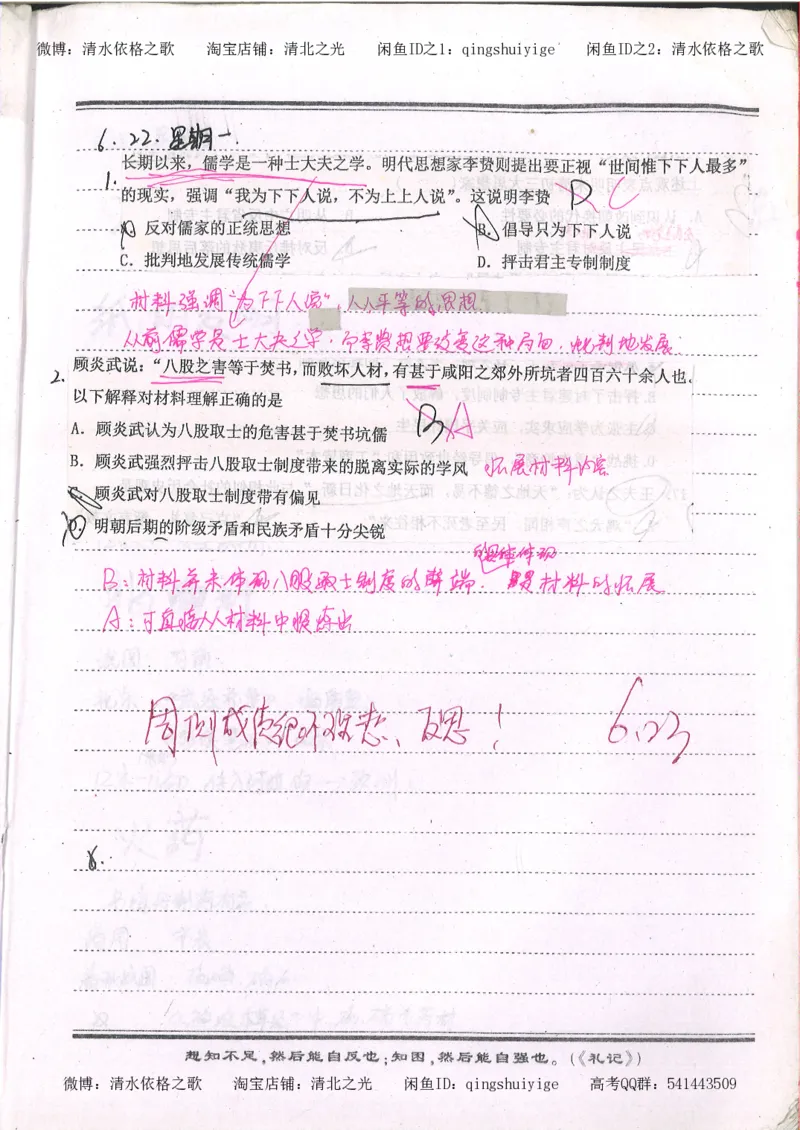 微博：清水依格之歌 淘宝店铺：清北之光 闲鱼ID之1：qingshuiyige 闲鱼ID之2：清水依格之歌
6.22.星期一.
长期以来，儒学是一种士大夫之学。明代思想家李贽则提出要正视“世间惟下下人最多”
1.
的现实，强调“我为下下人说，不为上上人说”。这说明李贽 D C
A. 反对儒家的正统思想 B. 倡导只为下下人说
C. 批判地发展传统儒学 D. 抨击君主专制制度
材料强调“为下下人说”，人人平等的思想
从前儒学是士大夫之学，而李贽想要改变这种局面，批判地发展.
2. 顾炎武说：“八股之害等于焚书，而败坏人材，有甚于咸阳之郊外所坑者四百六十余人也。
以下解释对材料理解正确的是
A. 顾炎武认为八股取士的危害甚于焚书坑儒 B A
B. 顾炎武强烈抨击八股取士制度带来的脱离实际的学风 拓展材料内容
C. 顾炎武对八股取士制度带有偏见
D. 明朝后期的阶级矛盾和民族矛盾十分尖锐
B：材料并未体现八股取士制度的弊端. 是材料的拓展
A：可直接从材料中得出
周测成绩 反思！ 6.23
6.
想知不足，然后能自反也；知困，然后能自强也。（《礼记》）
微博：清水依格之歌 淘宝店铺：清北之光 闲鱼ID：qingshuiyige 高考QQ群：541443509